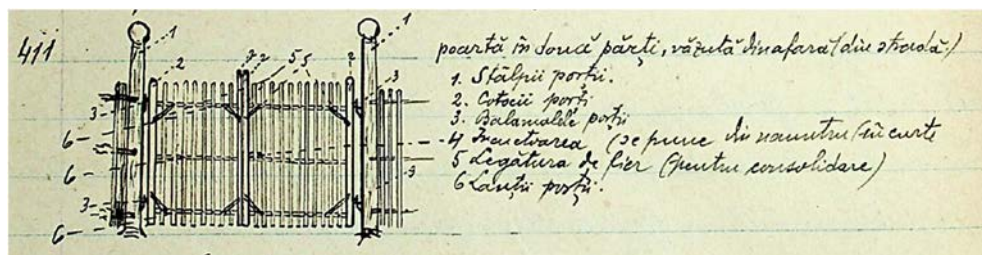 411
1 1
2 2 5 5 2
3 3
6
6
3 3
6
poartă în două părți, văzută dinafară (din stradă.)
1. Stâlpii porții.
2. Cotocii porți
3. Balamalele porții
4 Încuetoarea (se pune din năuntru/în curte
5 Legătura de fier (pentru consolidare)
6 Lanții porții.